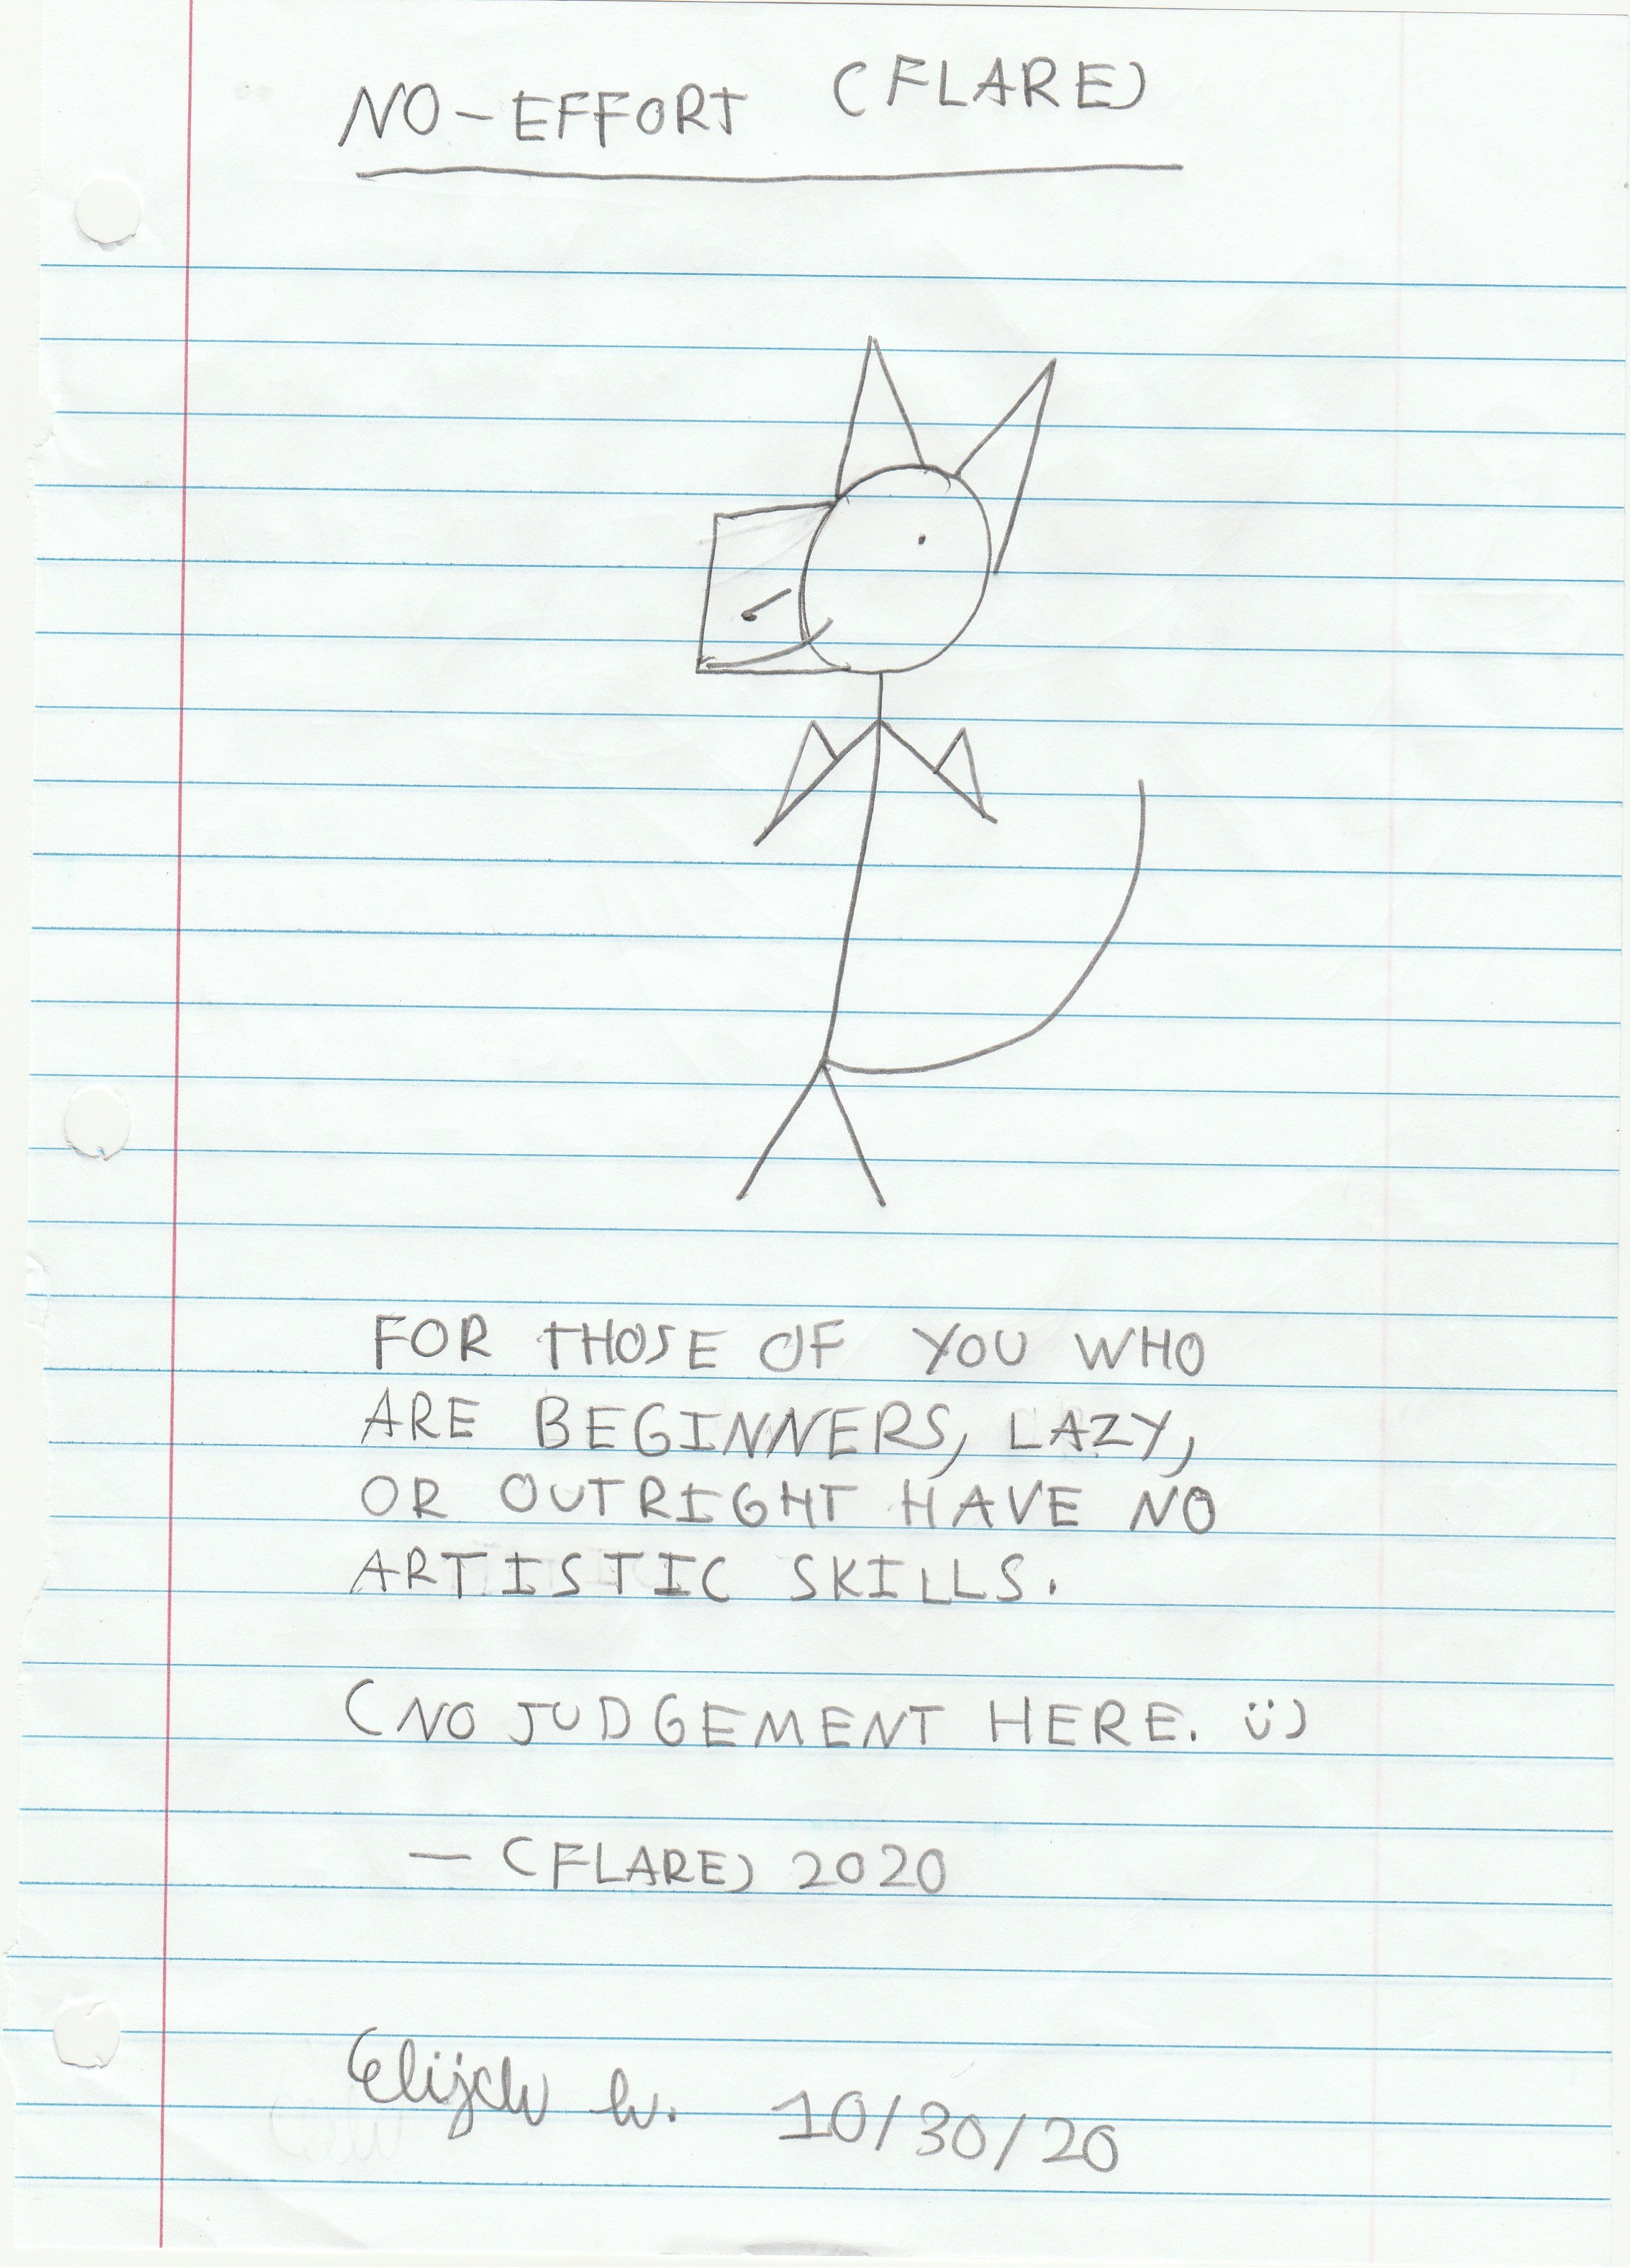 NO-EFFORT (FLARE)
FOR THOSE OF YOU WHO
ARE BEGINNERS, LAZY,
OR OUTRIGHT HAVE NO
ARTISTIC SKILLS.
(NO JUDGEMENT HERE. Ü)
— (FLARE) 2020
Elijah W. 10/30/20